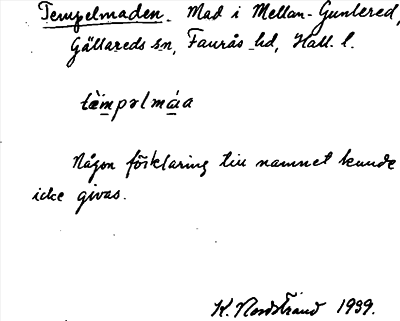 Tempelmaden. Mad i Mellan-Gunnered,
Gällareds sn, Faurås hd, Hall. l.
tæ̀mpəlmáa
Någon förklaring till namnet kunde
icke givas.
K. Nordstrand 1939.